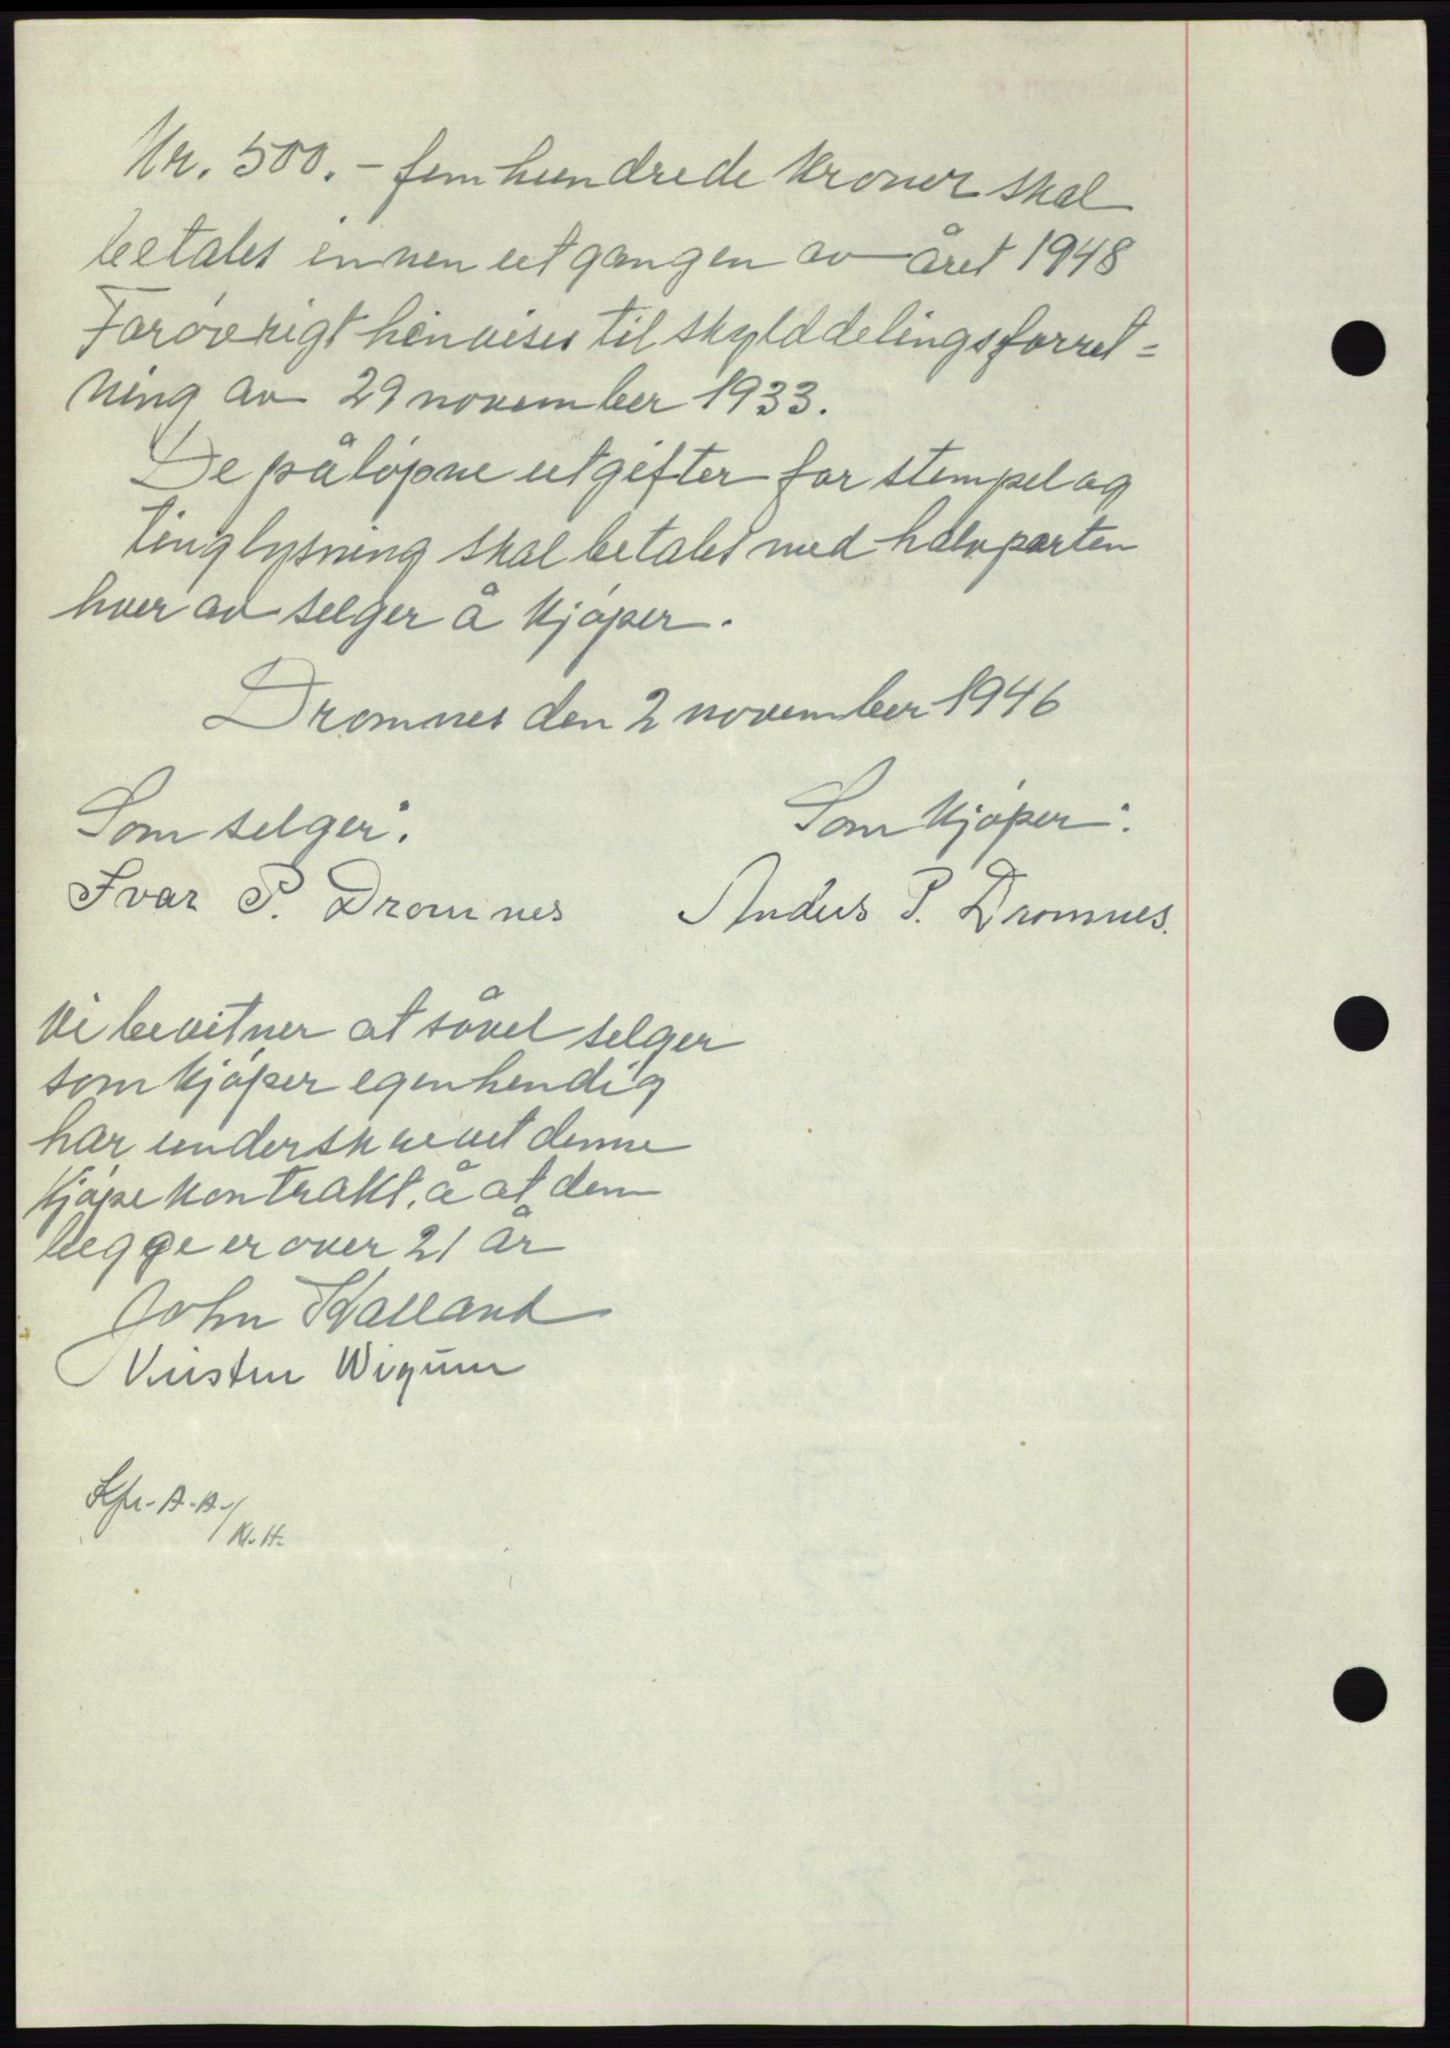 Kr. 500.- femhundrede kroner skal
betales innen utgangen av året 1948
Forøvrigt henvises til skylddelingsforret=
ning av 29 november 1933.
De påløpne utgifter for stempel og
tinglysning skal betales med halvparten
hver av selger å kjøper.
Dromnes den 2 november 1946
Som selger:
Som kjøper:
Ivar P. Dromnes
Anders P. Dromnes.
Vi bevitner at såvel selger
som kjøper egenhendig
har underskrevet denne
kjøpekontrakt, å at dem
begge er over 21 år
John Halland
Kirsten Wigum
Kfr. A.A./
Kl. H.